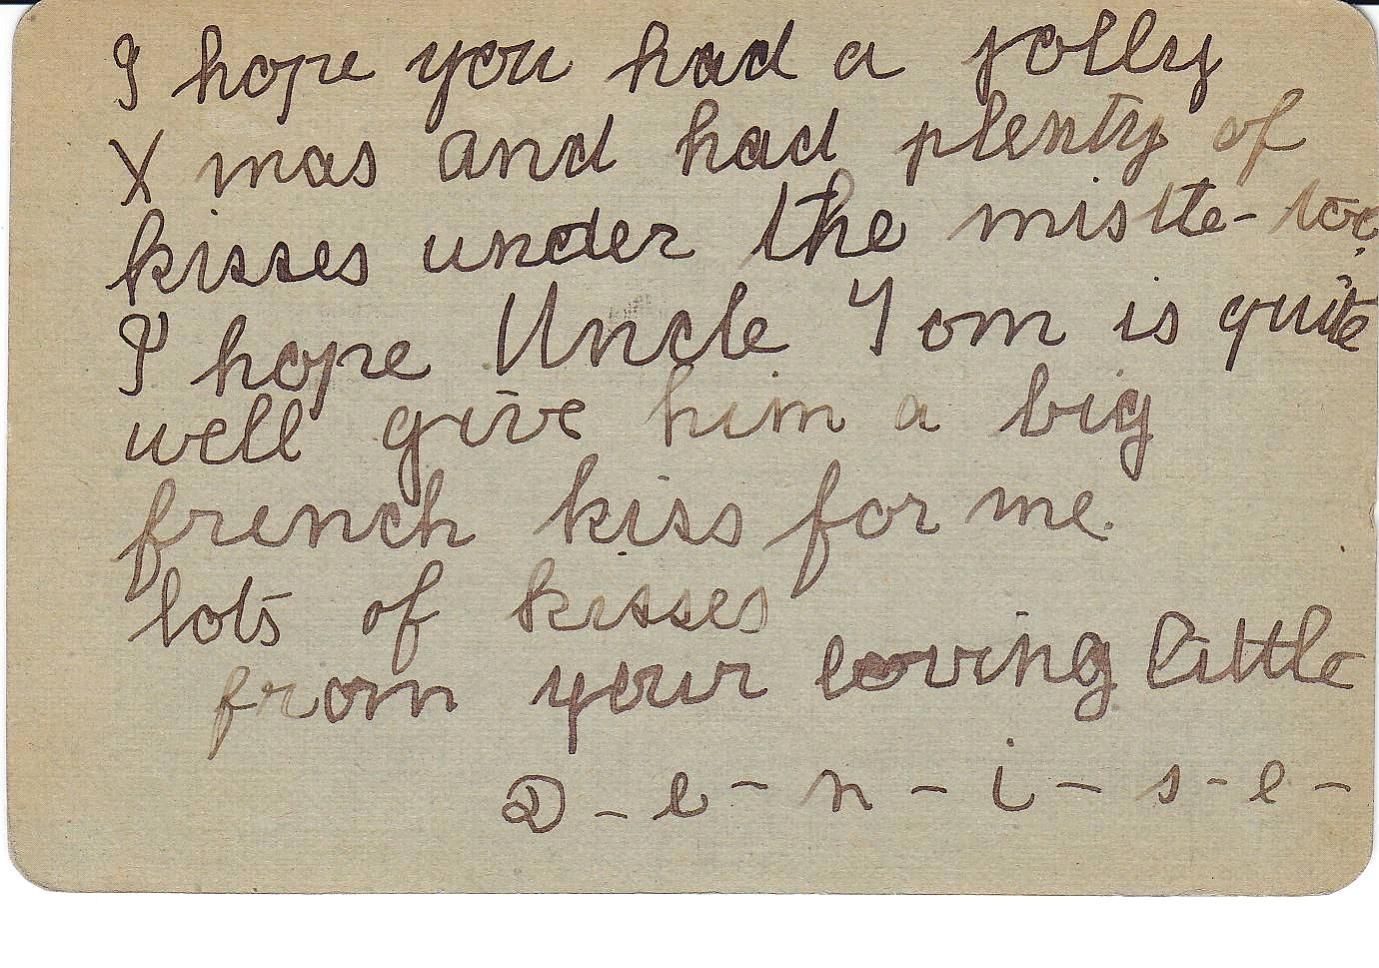 I hope you had a jolly
X mas and had plenty of
kisses under the mistte-toe.
I hope Uncle Tom is quite
well give him a big
french kiss for me.
lots of kisses
from your loving little
D-e-n-i-s-e-